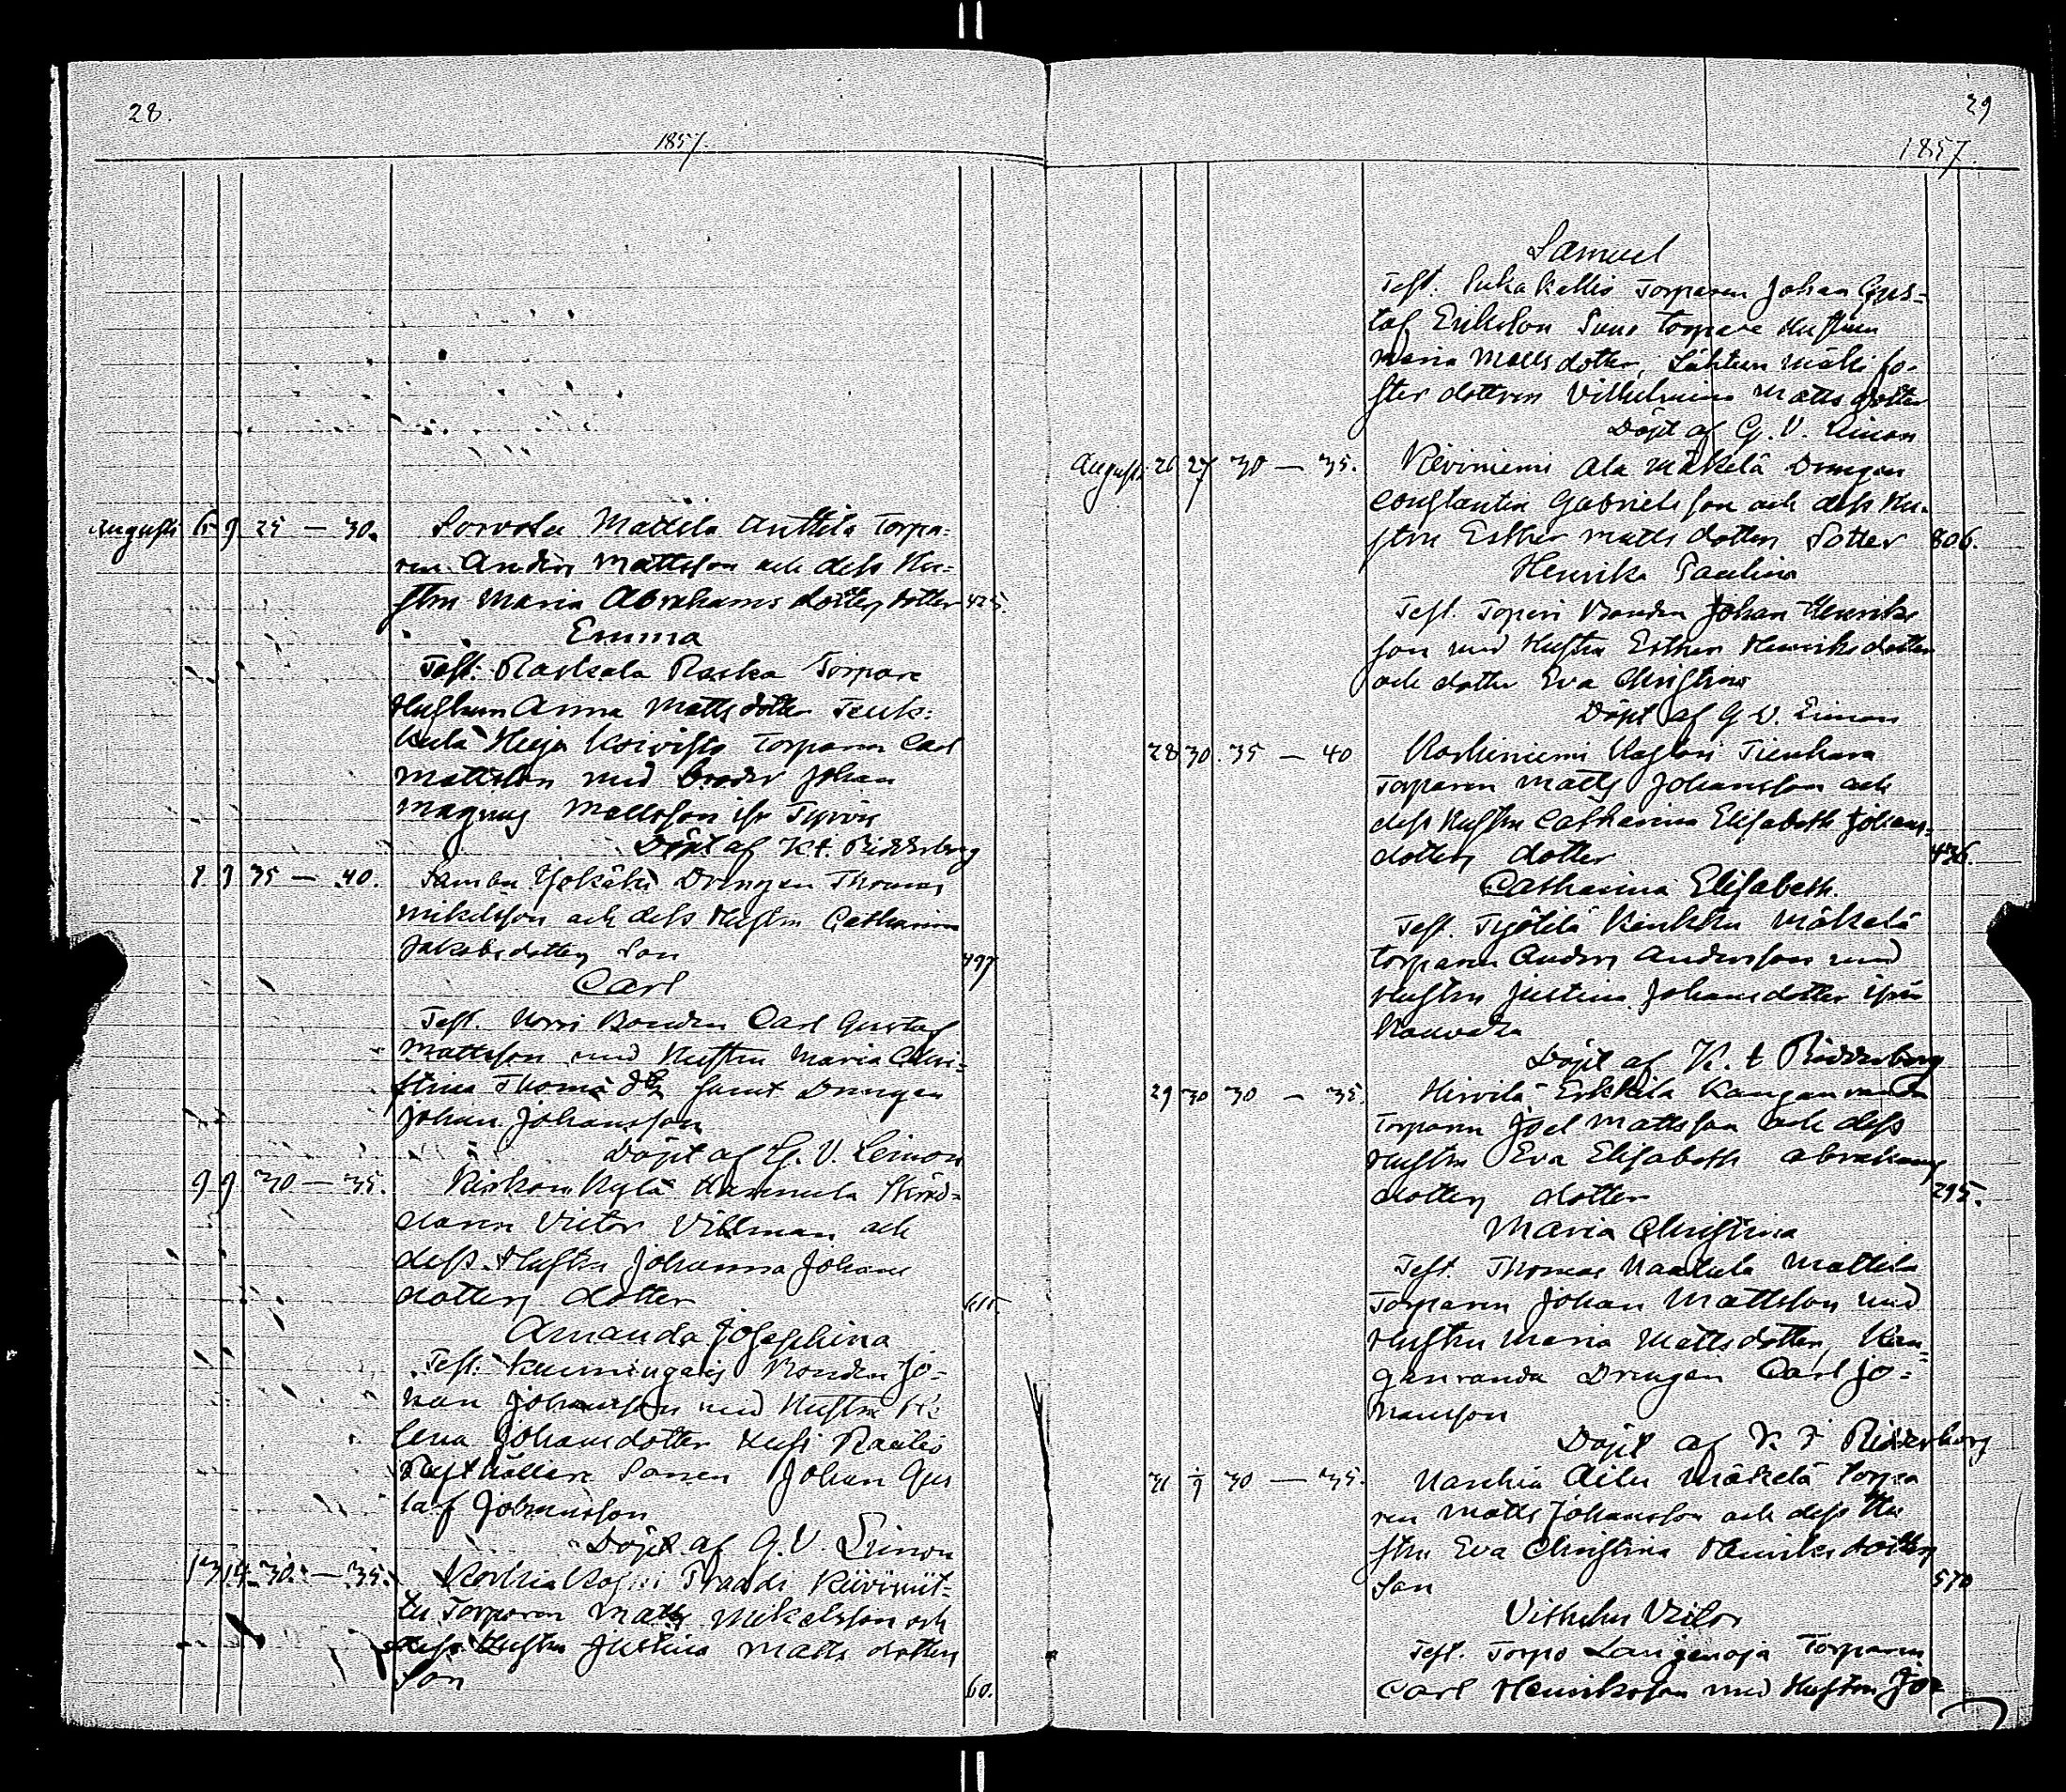 28.
1857.
Augusti 6 9 25 — 30. Sorvola Mattila Anttila Torpa-
ren Anders Mattsson och dess Hu-
stru Maria Abrahams dotters dotter 425.
Emma
Test: Raskala Raska Torpare
Hustrun Anna Matts dotter
Heija Koivisto Torparen Carl
Mattsson med broder Johan
Magnus Mattsson ifr
Döpt af K. t. Ridderborg
8 9 35 — 40. Yokäki Drengen Thomas
Mikelsson och dess Hustru Catharina
Jakobsdotters Son 497
Carl
Test. Bonden Carl Gustaf
Mattsson med Hustru Maria Chri-
stina Thomä samt Drengen
Johan Johansson
Döpt af G. V. Limon
9 9 30 — 35. Kirkon Kylä Hannula Skräd-
daren Victor Villman och
dess Hustru Johanna Johans
dotters dotter
Amanda Josephina
Test: Kuningais Bonden Jo-
han Johansson med Hustru He-
lena Johansdotter
Rusthållare Sonen Johan Gus
taf Johansson
Döpt af G. V. Limon
13 14 30 — 35. Koskis
Torparen Matts Mikelsson och
dess Hustru Justina Matts dotters
Son 60.
29
1857.
Samuel
Test. Torparen Johan Gus-
taf Eriksson Torpare Hustrun
Maria Mattsdotter, fo-
ster dottren Vilhelmina Mattsdotter
Döpt af G. V. Limon
Augusti 26 27 30 — 35. Kiviniemi Ala Mäkelä Drengen
Constantin Gabrielsson och dess Hu-
stru Esther Matts dotters Dotter 806.
Henrika Paulina
Test. Toperi Bonden Johan Henriks
son med Hustru Esther Henriksdotter
och dotter Eva Christina
Döpt af G. V. Limon
28 30. 35 — 40 Koskiniemi
Torparen Matts Johansson och
dess Hustru Catharina Elisabeth Johans-
dotters dotter 436.
Catharina Elisabeth.
Test. Mäkelä
Torparen Anders Andersson med
Hustru Justina Johansdotter ifrån
Kauvatsa
Döpt af K. t Ridderborg
29 30 30 — 35. Hirvilä Erkkilä Kanganranda
Torparen Joel Mattsson och dess
Hustru Eva Elisabeth Abrahams
dotters dotter 295.
Maria Christina
Test. Thomas Mattila
Torparen Johan Mattsson med
Hustru Maria Mattsdotter, Kan-
ganranda Drengen Carl Jo-
hansson
Döpt af K t Ridderborg
31 1/9 30 — 35. Mäkelä Torpa
ren Matts Johansson och dess Hu
stru Eva Christina Henriks dotters
Son 570
Vilhelm Victor
Test. Torpo Torparen
Carl Henriksson med Hustru Jo-